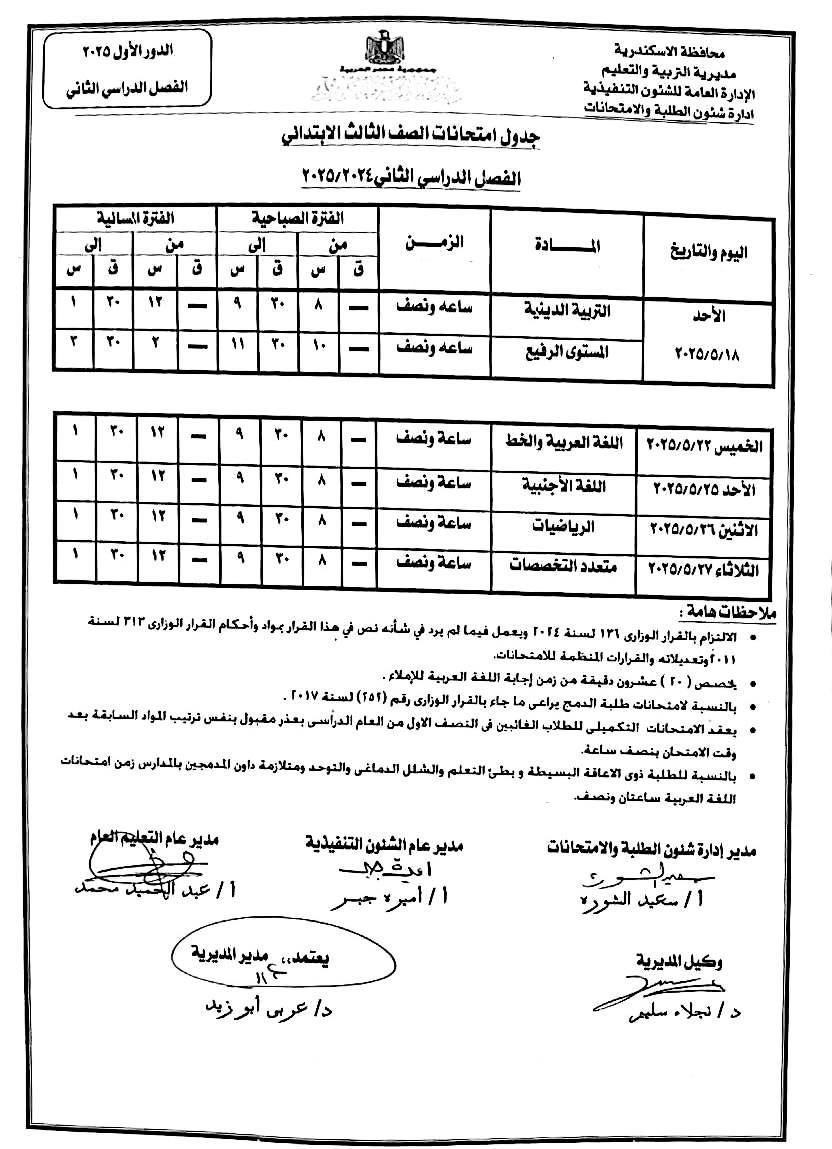 محافظة الاسكندرية
مديرية التربية والتعليم
الإدارة العامة للشئون التنفيذية
ادارة شئون الطلبة والامتحانات
جمهورية مصر العربية
الدور الأول ٢٠٢٥
الفصل الدراسي الثاني
جدول امتحانات الصف الثالث الابتدائي
الفصل الدراسي الثاني ٢٠٢٥/٢٠٢٤
اليوم والتاريخ المـــــادة الزمـــن الفترة الصباحية الفترة المسائية
من إلى من إلى
ق س ق س ق س ق س
الأحد التربية الدينية ساعه ونصف — ٨ ٣٠ ٩ — ١٢ ٣٠ ١
٢٠٢٥/٥/١٨ المستوى الرفيع ساعه ونصف — ١٠ ٣٠ ١١ — ٢ ٣٠ ٣
الخميس ٢٠٢٥/٥/٢٢ اللغة العربية والخط ساعة ونصف — ٨ ٣٠ ٩ — ١٢ ٣٠ ١
الأحد ٢٠٢٥/٥/٢٥ اللغة الأجنبية ساعة ونصف — ٨ ٣٠ ٩ — ١٢ ٣٠ ١
الاثنين ٢٠٢٥/٥/٢٦ الرياضيات ساعة ونصف — ٨ ٣٠ ٩ — ١٢ ٣٠ ١
الثلاثاء ٢٠٢٥/٥/٢٧ متعدد التخصصات ساعة ونصف — ٨ ٣٠ ٩ — ١٢ ٣٠ ١
ملاحظات هامة :
• الالتزام بالقرار الوزارى ١٣٦ لسنة ٢٠٢٤ ويعمل فيما لم يرد في شأنه نص في هذا القرار بمواد وأحكام القرار الوزارى ٣١٣ لسنة
٢٠١١ وتعديلاته والقرارات المنظمة للامتحانات.
• يخصص ( ٢٠ ) عشرون دقيقة من زمن إجابة اللغة العربية للإملاء .
• بالنسبة لامتحانات طلبة الدمج يراعى ما جاء بالقرار الوزارى رقم (٢٥٢) لسنة ٢٠١٧ .
• يعقد الامتحانات التكميلى للطلاب الغائبين فى النصف الاول من العام الدرأسى بعذر مقبول بنفس ترتيب المواد السابقة بعد
وقت الامتحان بنصف ساعة.
• بالنسبة للطلبة ذوى الاعاقة البسيطة و بطئ التعلم والشلل الدماغى والتوحد ومتلازمة داون المدمجين بالمدارس زمن امتحانات
اللغة العربية ساعتان ونصف.
مدير إدارة شئون الطلبة والامتحانات مدير عام الشئون التنفيذية مدير عام التعليم العام
أ/ سعيد الشوره أ/ أميره جبر أ/ عبد الحميد محمد
وكيل المديرية يعتمد,, مدير المديرية
د/ نجلاء سليم د/ عربى أبو زيد